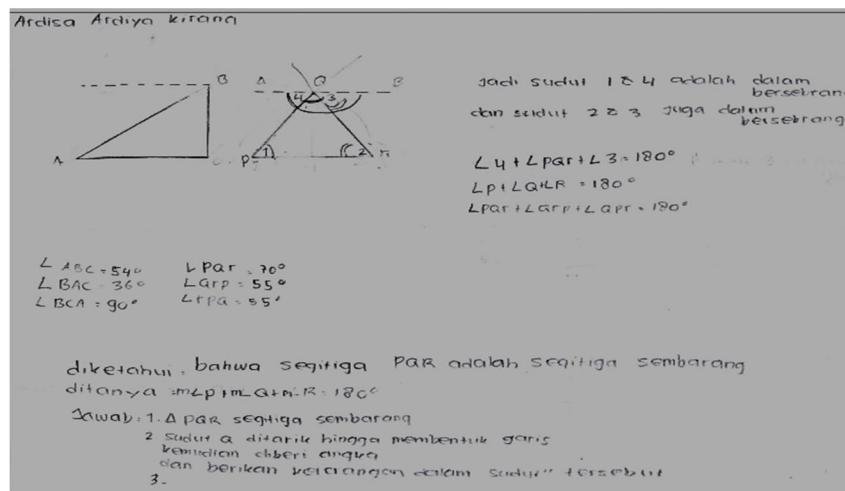 Ardisa Ardiya kirana
B
A
C
A Q B
4 3
P 1
2 r
Jadi sudut 1 & 4 adalah dalam
bersebran
dan sudut 2 & 3 juga dalam
bersebrang
∠4 + ∠PQr + ∠3 = 180°
∠P + ∠Q + ∠R = 180°
∠PQr + ∠Qrp + ∠QPr = 180°
∠ABC = 54°
∠BAC = 36°
∠BCA = 90°
∠PQr = 70°
∠Qrp = 55°
∠rpQ = 55°
diketahui, bahwa segitiga PQR adalah segitiga sembarang
ditanya = m∠p + m∠Q + m∠R = 180°
Jawab: 1. Δ PQR segitiga sembarang
2 sudut Q ditarik hingga membentuk garis
kemudian diberi angka
dan berikan keterangan dalam sudut" tersebut
3.